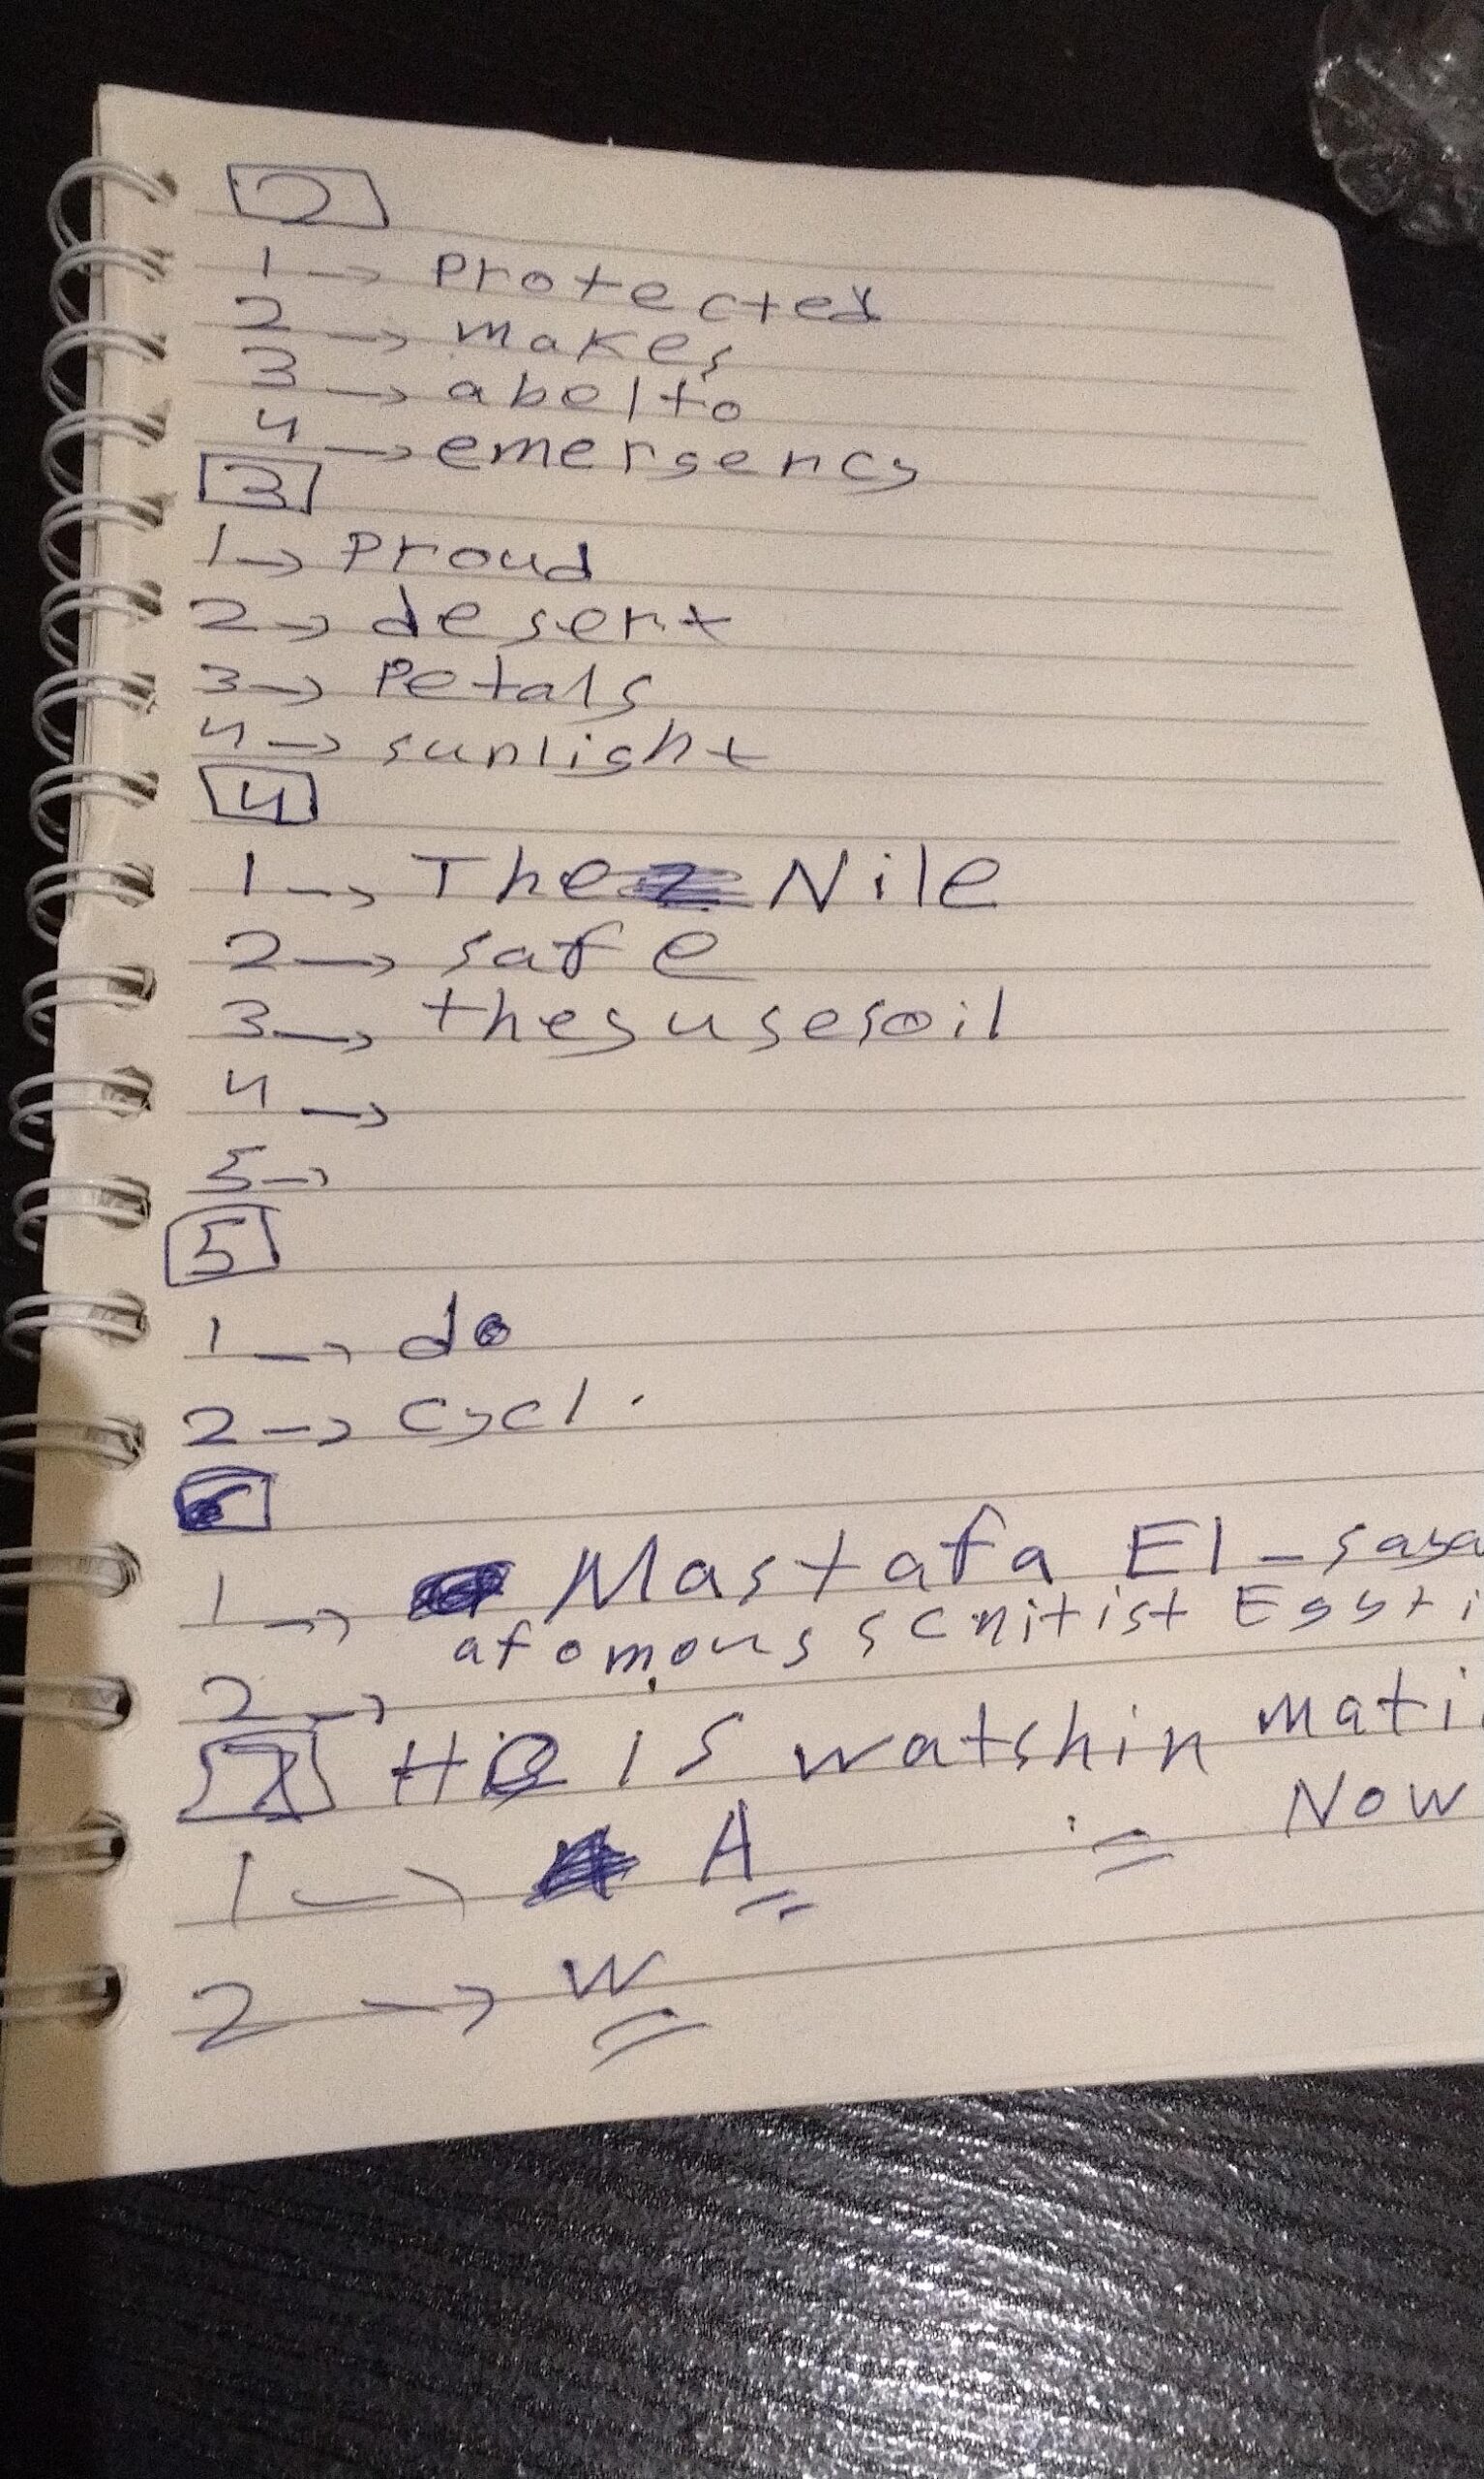 2
1 → Protected
2 → makes
3 → abelto
4 → emergency
3
1 → Proud
2 → desert
3 → Petals
4 → sunlight
4
1 → The Nile
2 → safe
3 → theyusesoil
4 →
5 →
5
1 → do
2 → cycl.
6
1 → Mastafa El-saya
afomous scnitist Egyti
2 →
7 He is watshin mati
Now
1 → A
2 → W